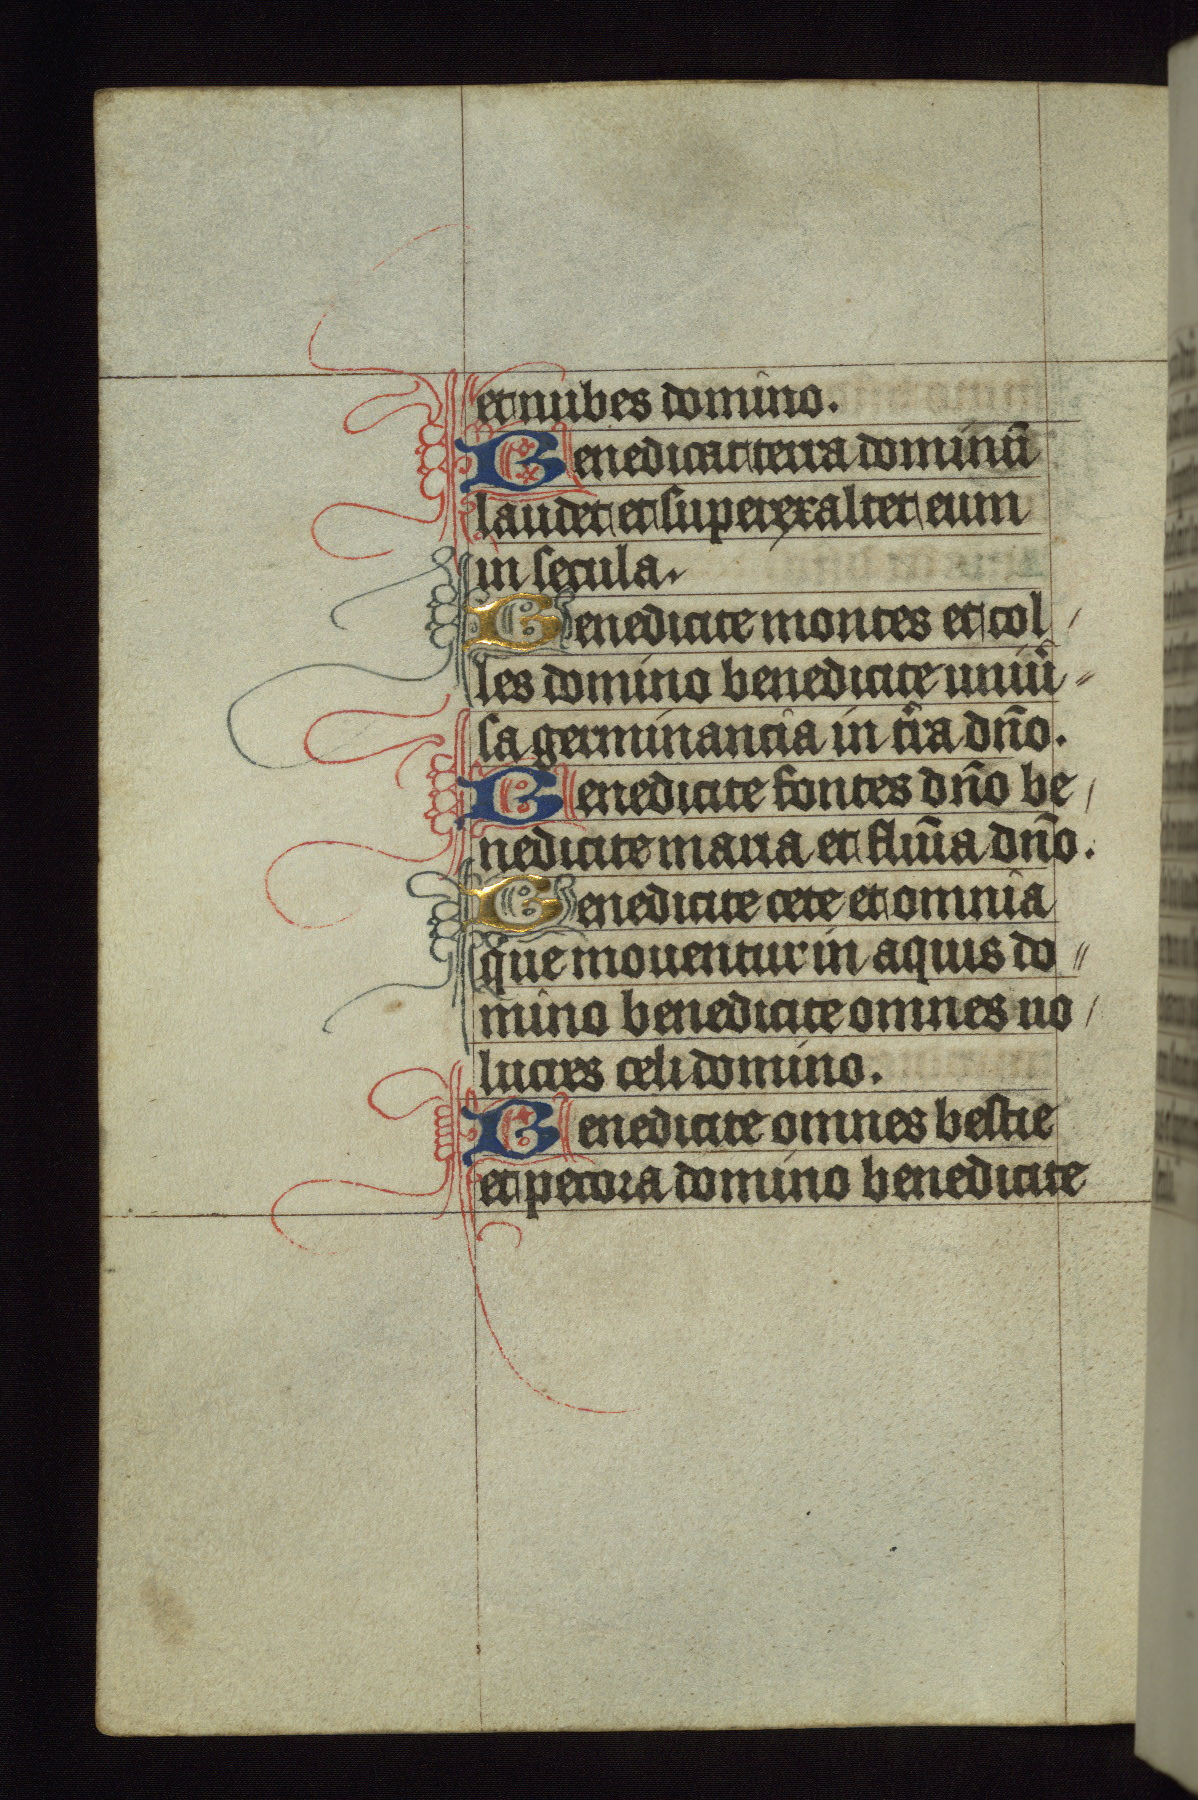 et nubes domino.
Benedicat terra dominū
laudet et superexaltet eum
in secula.
Benedicite montes et col
les domino benedicite uniũ
sa germinancia in t̃ra dño.
Benedicite fontes dño be
nedicite maria et flūīa dño.
Benedicite cete et omnia
que mouentur in aquis do
mino benedicite omnes uo
lucres celi domino.
Benedicite omnes bestie
et pecora domino benedicite